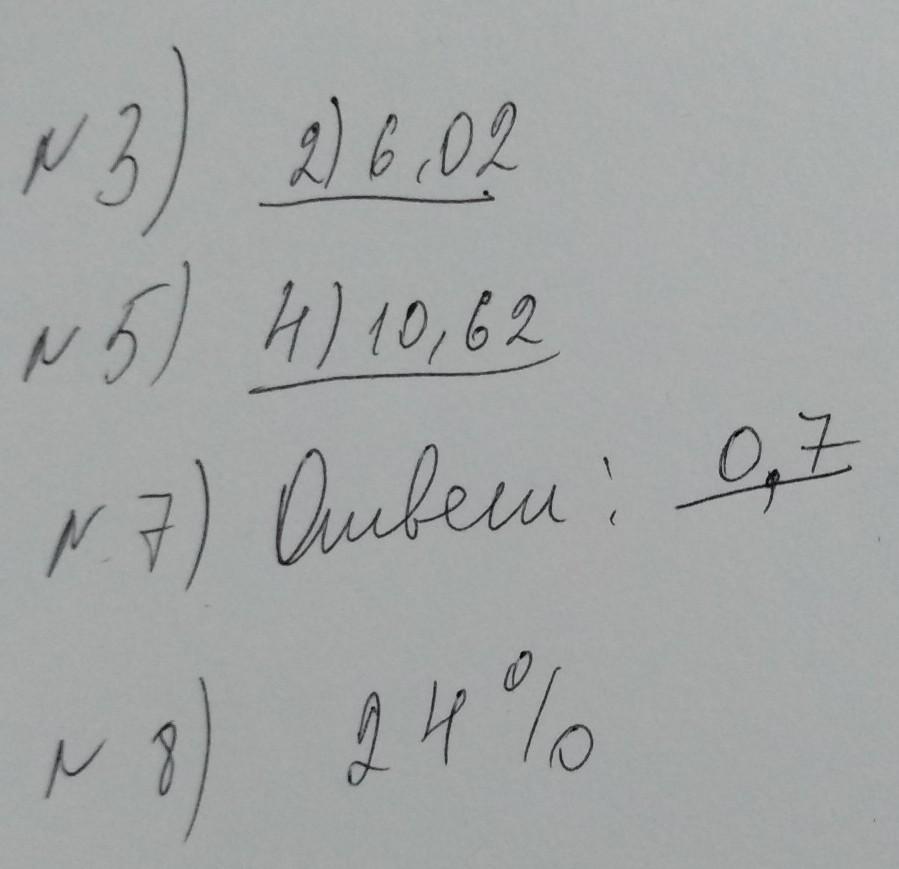 №3) 2) 6,02
№5) 4) 10,62
№7) Ответ: 0,7
№8) 24%